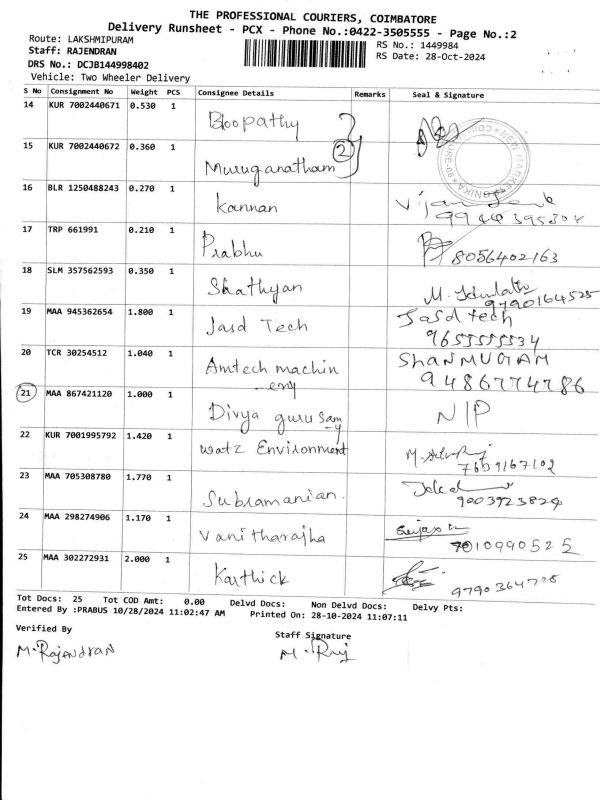 THE PROFESSIONAL COURIERS, COIMBATORE
Delivery Runsheet - PCX - Phone No.:0422-3505555 - Page No.:2
Route: LAKSHMIPURAM RS No.: 1449984
Staff: RAJENDRAN RS Date: 28-Oct-2024
DRS No.: DCJB144998402
Vehicle: Two Wheeler Delivery
S No Consignment No Weight PCS Consignee Details Remarks Seal & Signature
14 KUR 7002440671 0.530 1 Boopathy
15 KUR 7002440672 0.360 1 Muruganatham 2
16 BLR 1250488243 0.270 1 Kannan
17 TRP 661991 0.210 1 Prabhu 8056402163
18 SLM 357562593 0.350 1 Shathyan 9790164525
19 MAA 945362654 1.800 1 Jasd Tech Jasd tech
9655555534
20 TCR 30254512 1.040 1 Amtech machin SHANMUGAM
ery 9486774786
21 MAA 867421120 1.000 1 Divya gurusamy N/P
22 KUR 7001995792 1.420 1 watz Environment 7639167102
23 MAA 705308780 1.770 1 Subramanian. 9003923824
24 MAA 298274906 1.170 1 Vanitharajha 7010990525
25 MAA 302272931 2.000 1 Karthick
Tot Docs: 25 Tot COD Amt: 0.00 Delvd Docs: Non Delvd Docs: Delvy Pts:
Entered By :PRABUS 10/28/2024 11:02:47 AM Printed On: 28-10-2024 11:07:11
Verified By Staff Signature
M. Rajendran M. Raj